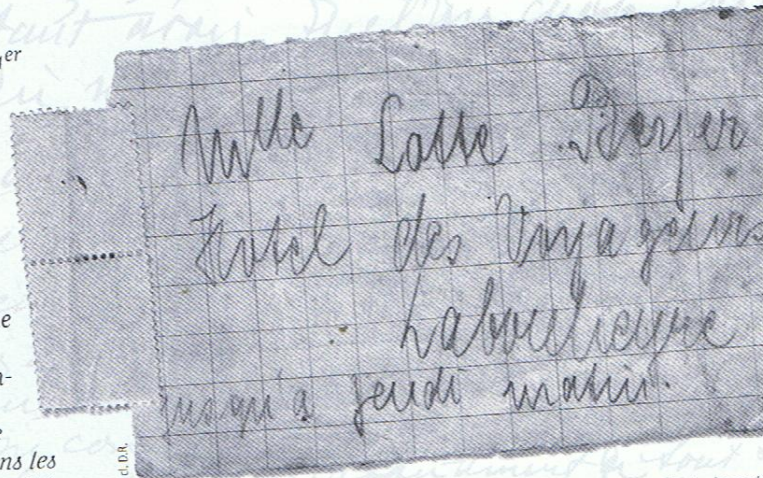 er
Mlle Lotte
Hotel des Voyageurs
Labouheyre
jusqu'à jeudi matin.
e
n-
ns les
cl. D.R.